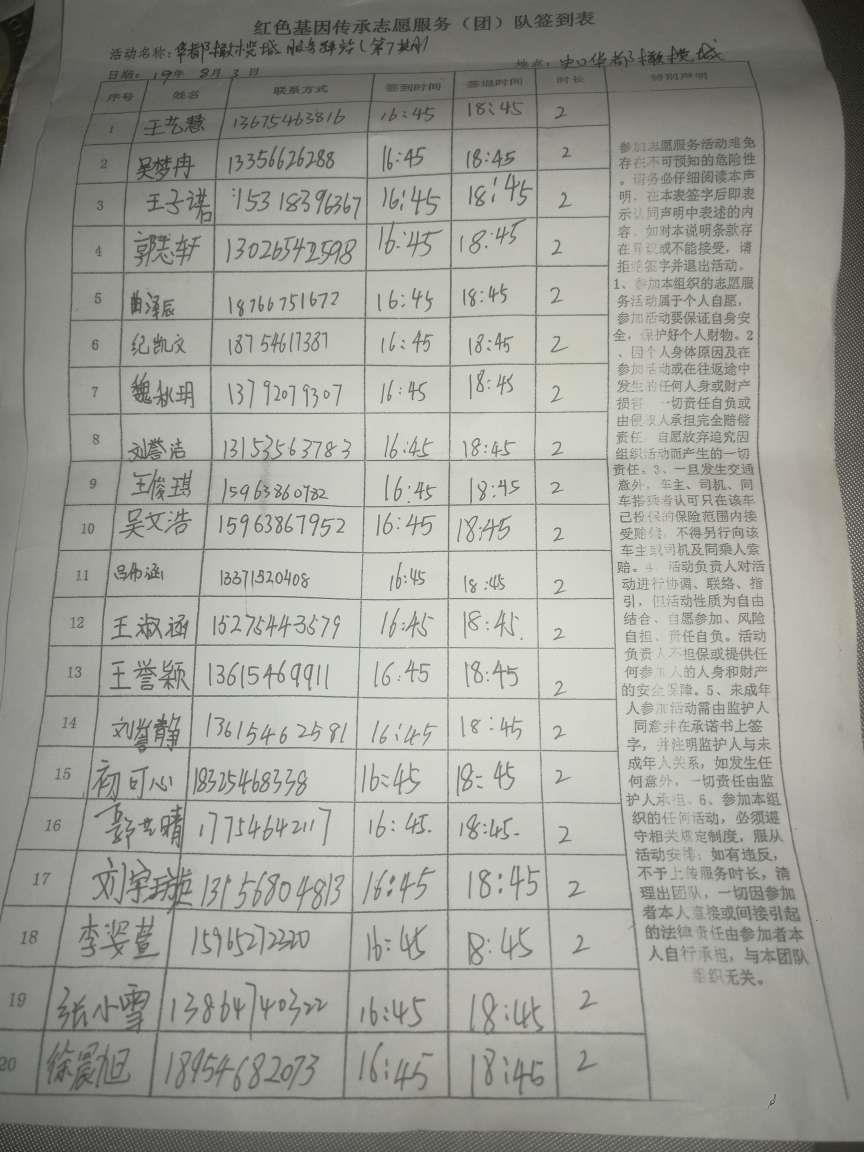 红色基因传承志愿服务（团）队签到表
活动名称：华都橄榄城服务驿站（第7期）
日期：19年8月3日 地点：中口华都橄榄城
序号 姓名 联系方式 签到时间 签退时间 时长 特别声明
1 王艺慧 13675463816 16:45 18:45 2
2 吴梦冉 13356626288 16:45 18:45 2
3 王子诺 15318396367 16:45 18:45 2
4 郭志轩 13026542598 16:45 18:45 2
5 曲泽辰 18766751672 16:45 18:45 2
6 纪凯文 18754617387 16:45 18:45 2
7 魏秋玥 13792079307 16:45 18:45 2
8 刘誉洁 13153563783 16:45 18:45 2
9 王俊琪 15963860782 16:45 18:45 2
10 吴文浩 15963867952 16:45 18:45 2
11 13371520408 16:45 18:45 2
12 王淑涵 15275443579 16:45 18:45. 2
13 王誉颖 13615469911 16:45 18:45 2
14 刘誉静 13615462581 16:45 18:45 2
15 初可心 18325468338 16:45 18:45 2
16 郭艺晴 17754642117 16:45. 18:45. 2
17 刘宇 13156804813 16:45 18:45 2
18 李姿萱 15965272320 16:45 18:45 2
19 张小雪 13864740322 16:45 18:45 2
20 徐晨旭 18954682073 16:45 18:45 2
参加志愿服务活动难免
存在不可预知的危险性
。请务必仔细阅读本声
明，在本表签字后即表
示认同声明中表述的内
容。如对本说明条款存
在异议或不能接受，请
拒绝签字并退出活动。
1、参加本组织的志愿服
务活动属于个人自愿，
参加活动要保证自身安
全，保护好个人财物。2
、因个人身体原因及在
参加活动或在往返途中
发生的任何人身或财产
损害，一切责任自负或
由侵权人承担完全赔偿
责任，自愿放弃追究因
组织活动而产生的一切
责任。3、一旦发生交通
意外，车主、司机、同
车搭乘者认可只在该车
已投保的保险范围内接
受赔偿，不得另行向该
车主或司机及同乘人索
赔。4、活动负责人对活
动进行协调、联络、指
引，但活动性质为自由
结合、自愿参加、风险
自担、责任自负。活动
负责人不担保或提供任
何参加人的人身和财产
的安全保障。5、未成年
人参加活动需由监护人
同意并在承诺书上签
字，并注明监护人与未
成年人关系，如发生任
何意外，一切责任由监
护人承担。6、参加本组
织的任何活动，必须遵
守相关规定制度，服从
活动安排；如有违反，
不予上传服务时长，清
理出团队，一切因参加
者本人直接或间接引起
的法律责任由参加者本
人自行承担，与本团队
组织无关。